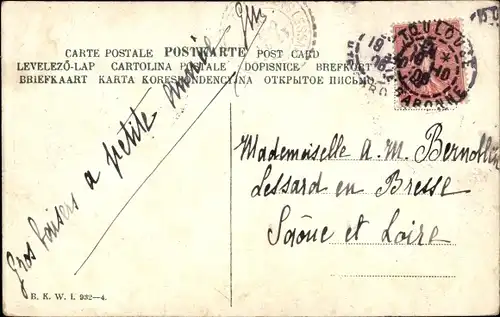 CARTE POSTALE POSTKARTE POST CARD
LEVELEZŐ-LAP CARTOLINA POSTALE DOPISNICE BREFKORT
BRIEFKAART KARTA KORESPONDENCYJNA ОТКРЫТОЕ ПИСЬМО
TOULOUSE
Gros baisers a petite amie
Mademoiselle A. M.
Lessard en Bresse
Saône et Loire
B. K. W. I. 932—4.